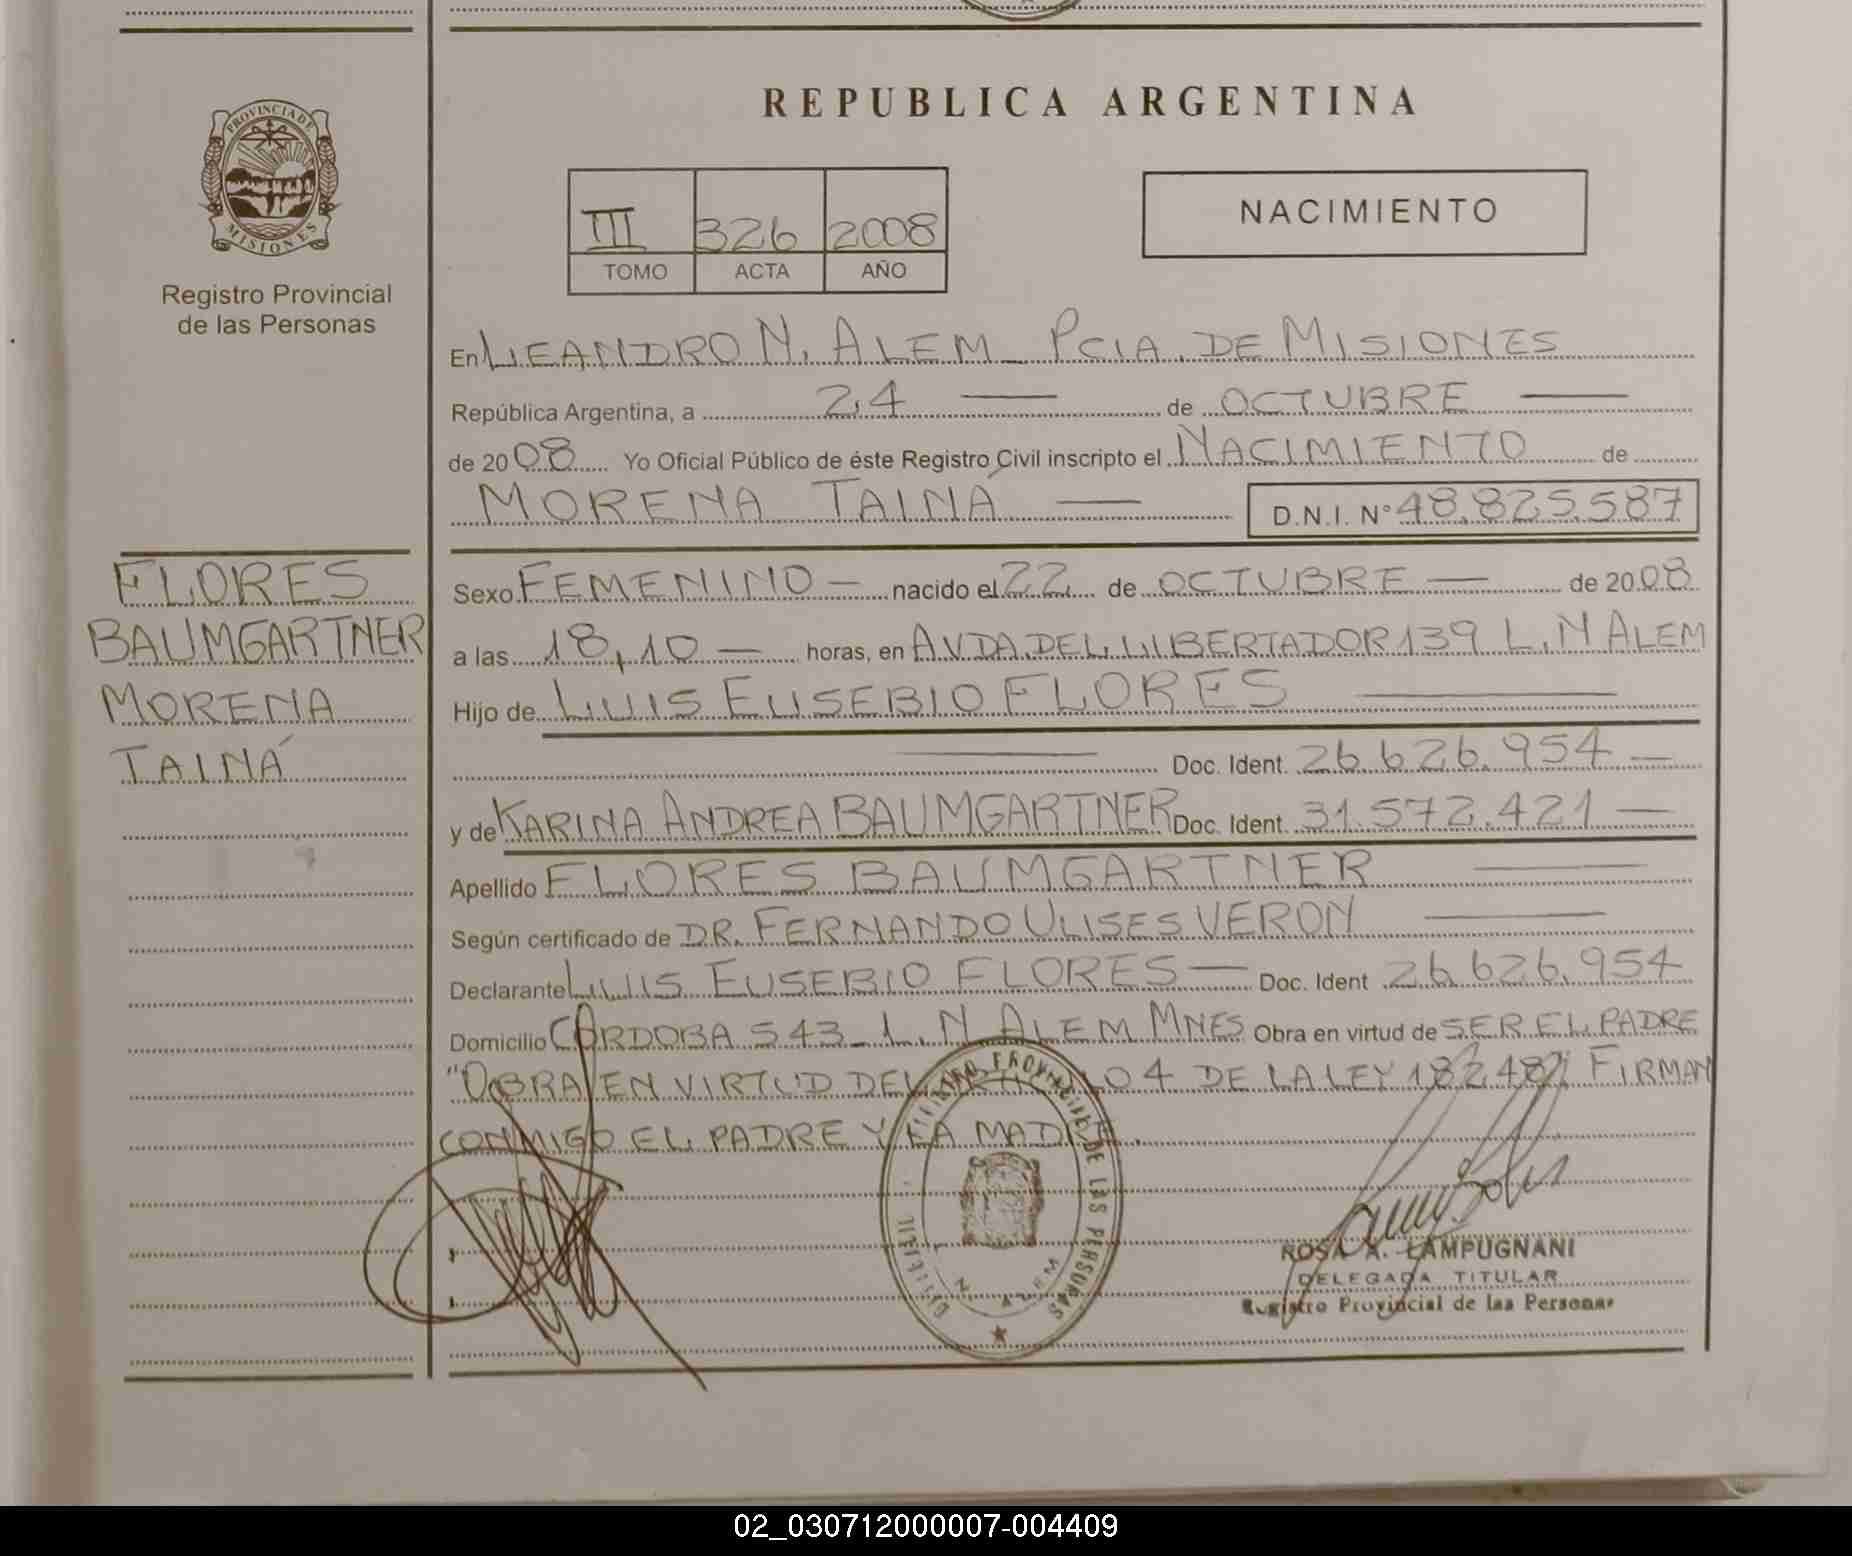 PROVINCIA DE
MISIONES
Registro Provincial
de las Personas
REPUBLICA ARGENTINA
III 326 2008
TOMO ACTA AÑO
NACIMIENTO
En LEANDRO N. ALEM - PCIA. DE MISIONES
República Argentina, a 24 — de OCTUBRE —
de 2008 Yo Oficial Público de éste Registro Civil inscripto el NACIMIENTO de
MORENA TAINÁ — D.N.I. N° 48.825.587
FLORES
BAUMGARTNER
MORENA
TAINÁ
Sexo FEMENINO — nacido el 22 de OCTUBRE — de 2008
a las 18,10 — horas, en AVDA.DEL LIBERTADOR 139 L.N ALEM
Hijo de LUIS EUSEBIO FLORES —
— Doc. Ident. 26.626.954 —
y de KARINA ANDREA BAUMGARTNER Doc. Ident. 31.572.421 —
Apellido FLORES BAUMGARTNER —
Según certificado de DR. FERNANDO ULISES VERON —
Declarante LUIS EUSEBIO FLORES — Doc. Ident 26.626.954
Domicilio CÓRDOBA 543 - L. N. ALEM MNES Obra en virtud de SER EL PADRE
"OBRA EN VIRTUD DEL 04 DE LA LEY 18248" FIRMAN
CONMIGO EL PADRE Y LA MADRE.
REGISTRO PROVINCIAL DE LAS PERSONAS
N. ALEM
ROSA A. LAMPUGNANI
DELEGADA TITULAR
Registro Provincial de las Personas
02_030712000007-004409